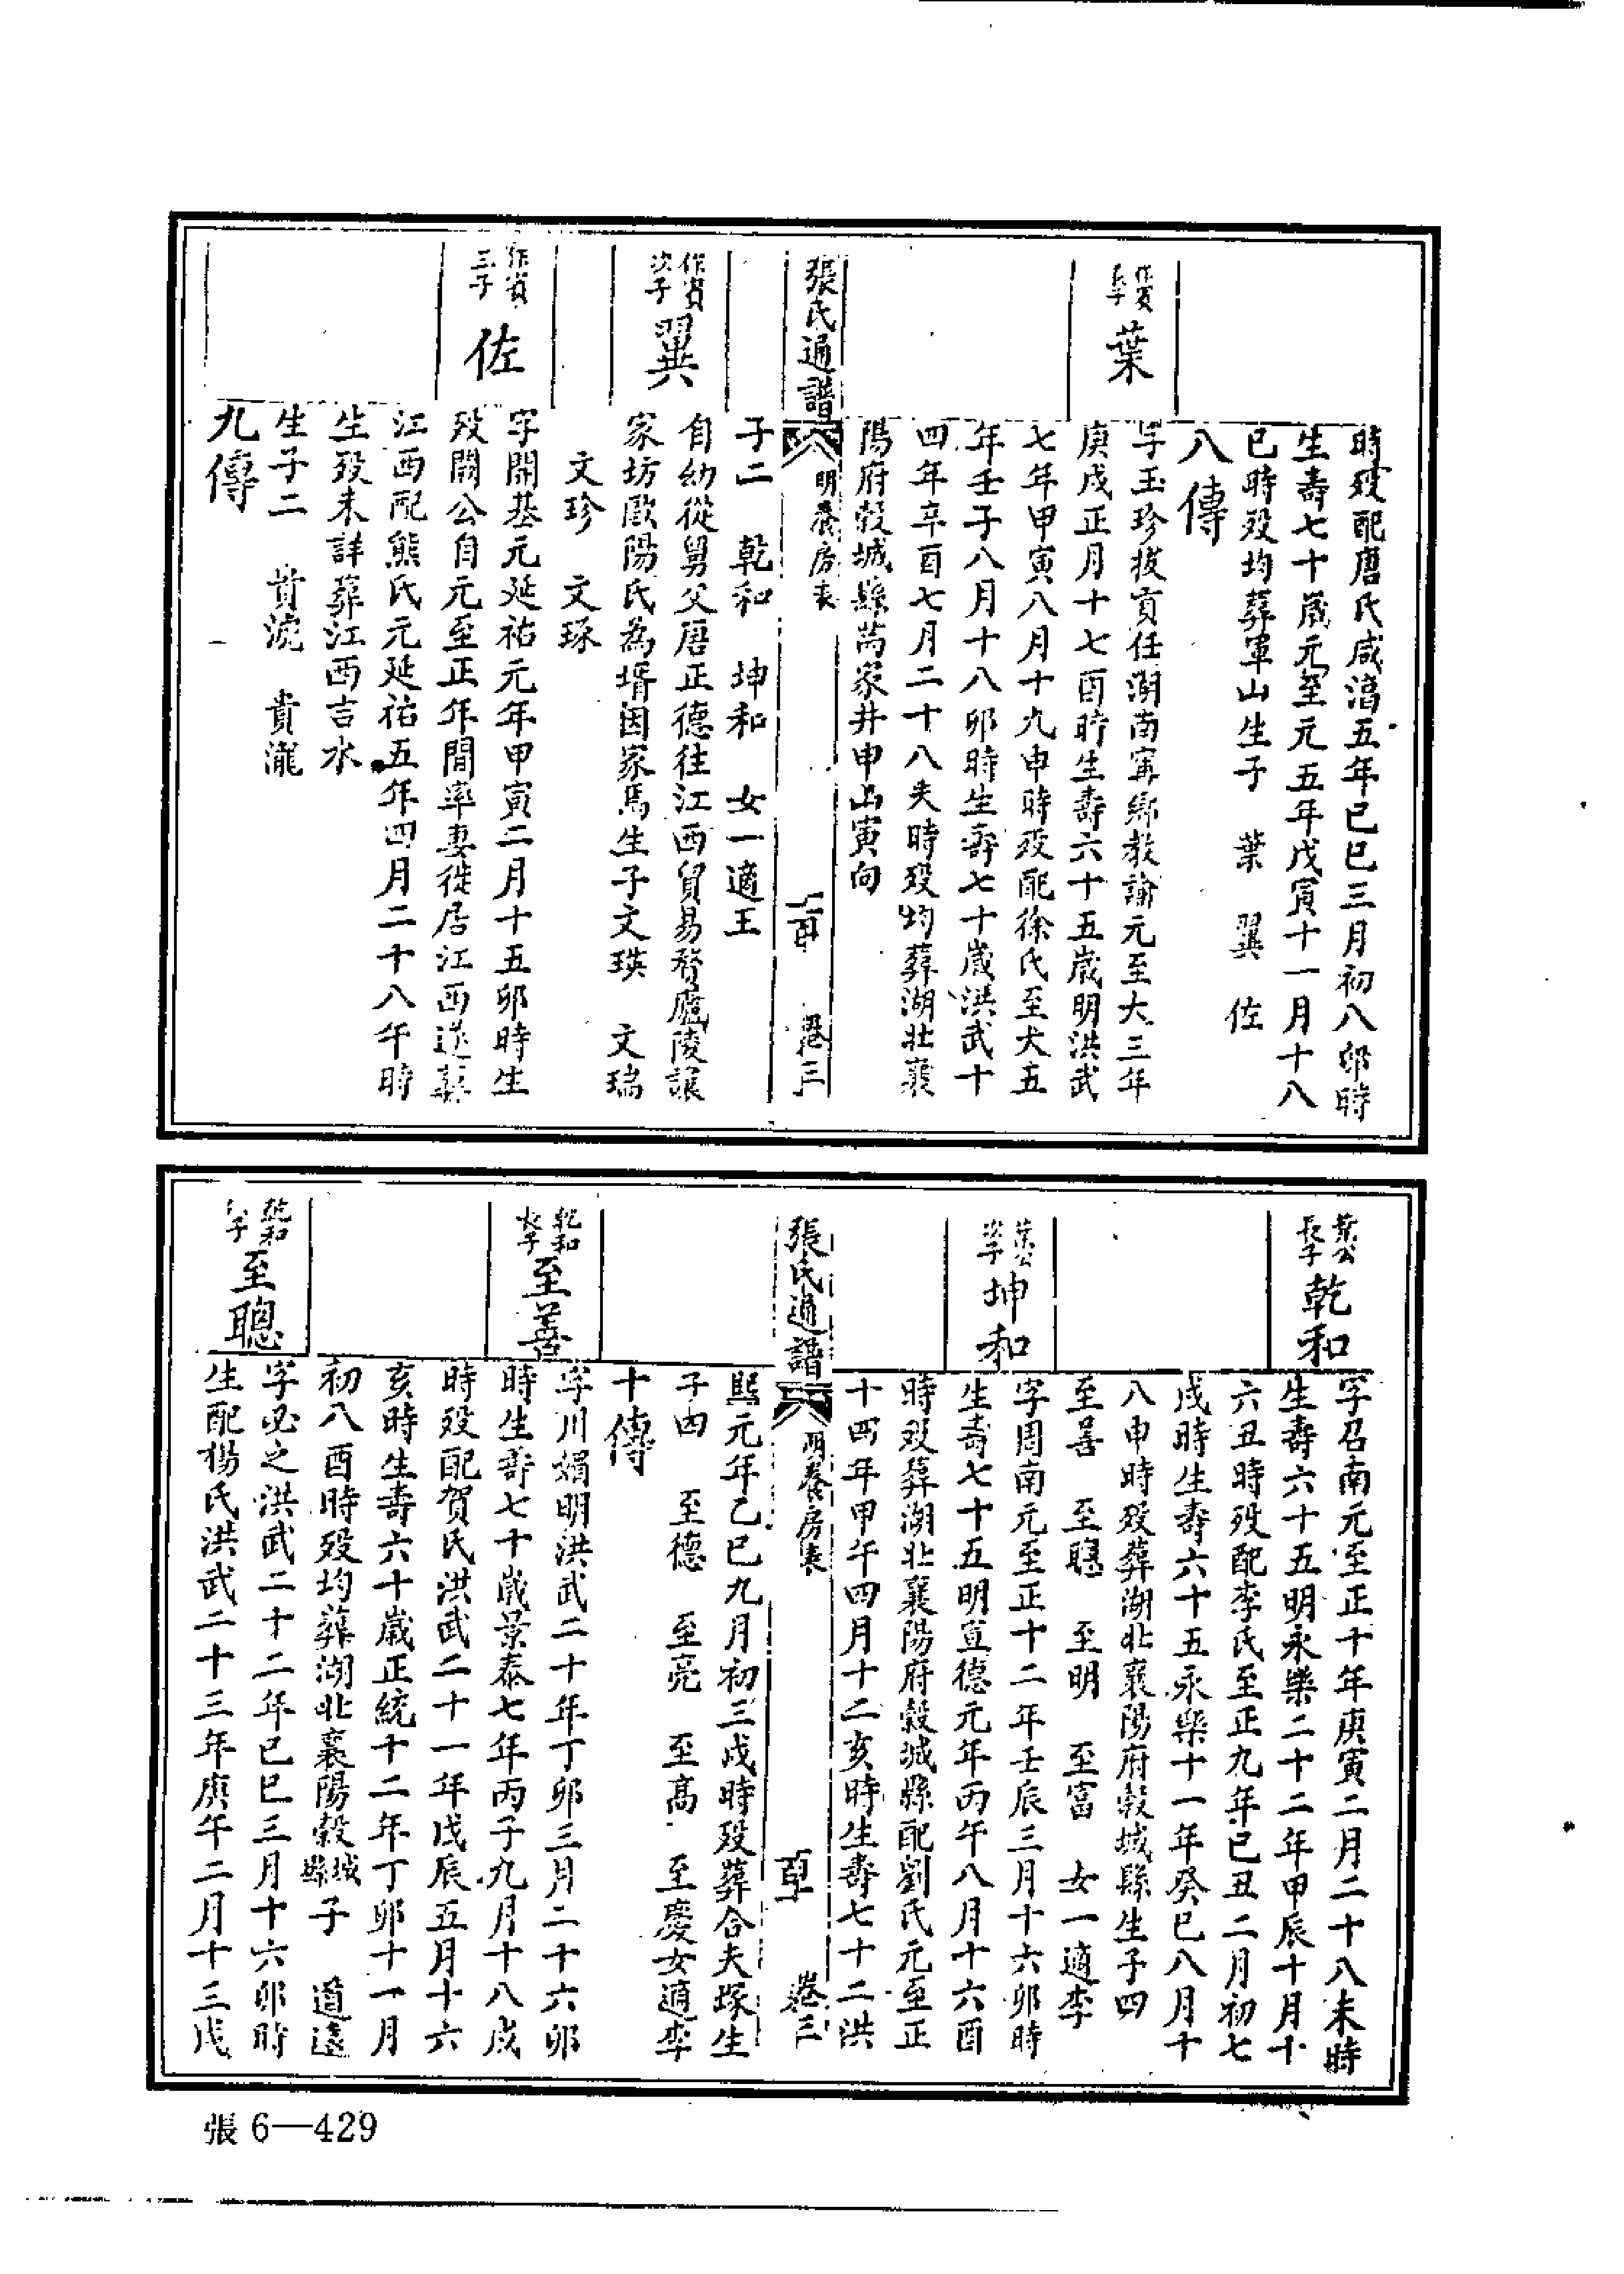 時歿配唐氏咸淳五年己巳三月初八卯時
生壽七十歲元至元五年戊寅十一月十八
巳時歿均葬軍山生子 葉 翼 佐
八傳
作賓長子 葉
字玉珍拔貢任湖南甯鄉教諭元至大三年
庚戌正月十七酉時生壽六十五歲明洪武
七年甲寅八月十九申時歿配徐氏至大五
年壬子八月十八卯時生壽七十歲洪武十
四年辛酉七月二十八亥時歿均葬湖北襄
陽府穀城縣萬家井申山寅向
張氏通譜 明養房表 卷三
子二 乾和 坤和 女一適王
作賓次子 翼
自幼從舅父唐正德往江西貿易贅廬陵讓
家坊歐陽氏為壻因家焉生子文瑛 文瑞
文珍 文琢
作賓三子 佐
字開基元延祐元年甲寅二月十五卯時生
歿闕公自元至正年間率妻徙居江西遂葬
江西配熊氏元延祐五年四月二十八午時
生歿未詳葬江西吉水
生子二 貴淲 貴瀧
九傳
葉公長子 乾和
字召南元至正十年庚寅二月二十八未時
生壽六十五明永樂二十二年甲辰十月十
六丑時歿配李氏至正九年己丑二月初七
戌時生壽六十五永樂十一年癸巳八月十
八申時歿葬湖北襄陽府穀城縣生子四
至善 至聰 至明 至富 女一適李
葉公次子 坤和
字周南元至正十二年壬辰三月十六卯時
生壽七十五明宣德元年丙午八月十六酉
時歿葬湖北襄陽府穀城縣配劉氏元至正
十四年甲午四月十二亥時生壽七十二洪
張氏通譜 明養房表 卷三
熙元年乙巳九月初三戌時歿葬合夫塚生
子四 至德 至亮 至高 至慶女適李
十傳
乾和長子 至善
字川娟明洪武二十年丁卯三月二十六卯
時生壽七十歲景泰七年丙子九月十八戌
時歿配賀氏洪武二十一年戊辰五月十六
亥時生壽六十歲正統十二年丁卯十一月
初八酉時歿均葬湖北襄陽穀城縣子 道遠
乾和次子 至聰
字必之洪武二十二年己巳三月十六卯時
生配楊氏洪武二十三年庚午二月十三戌
張 6—429